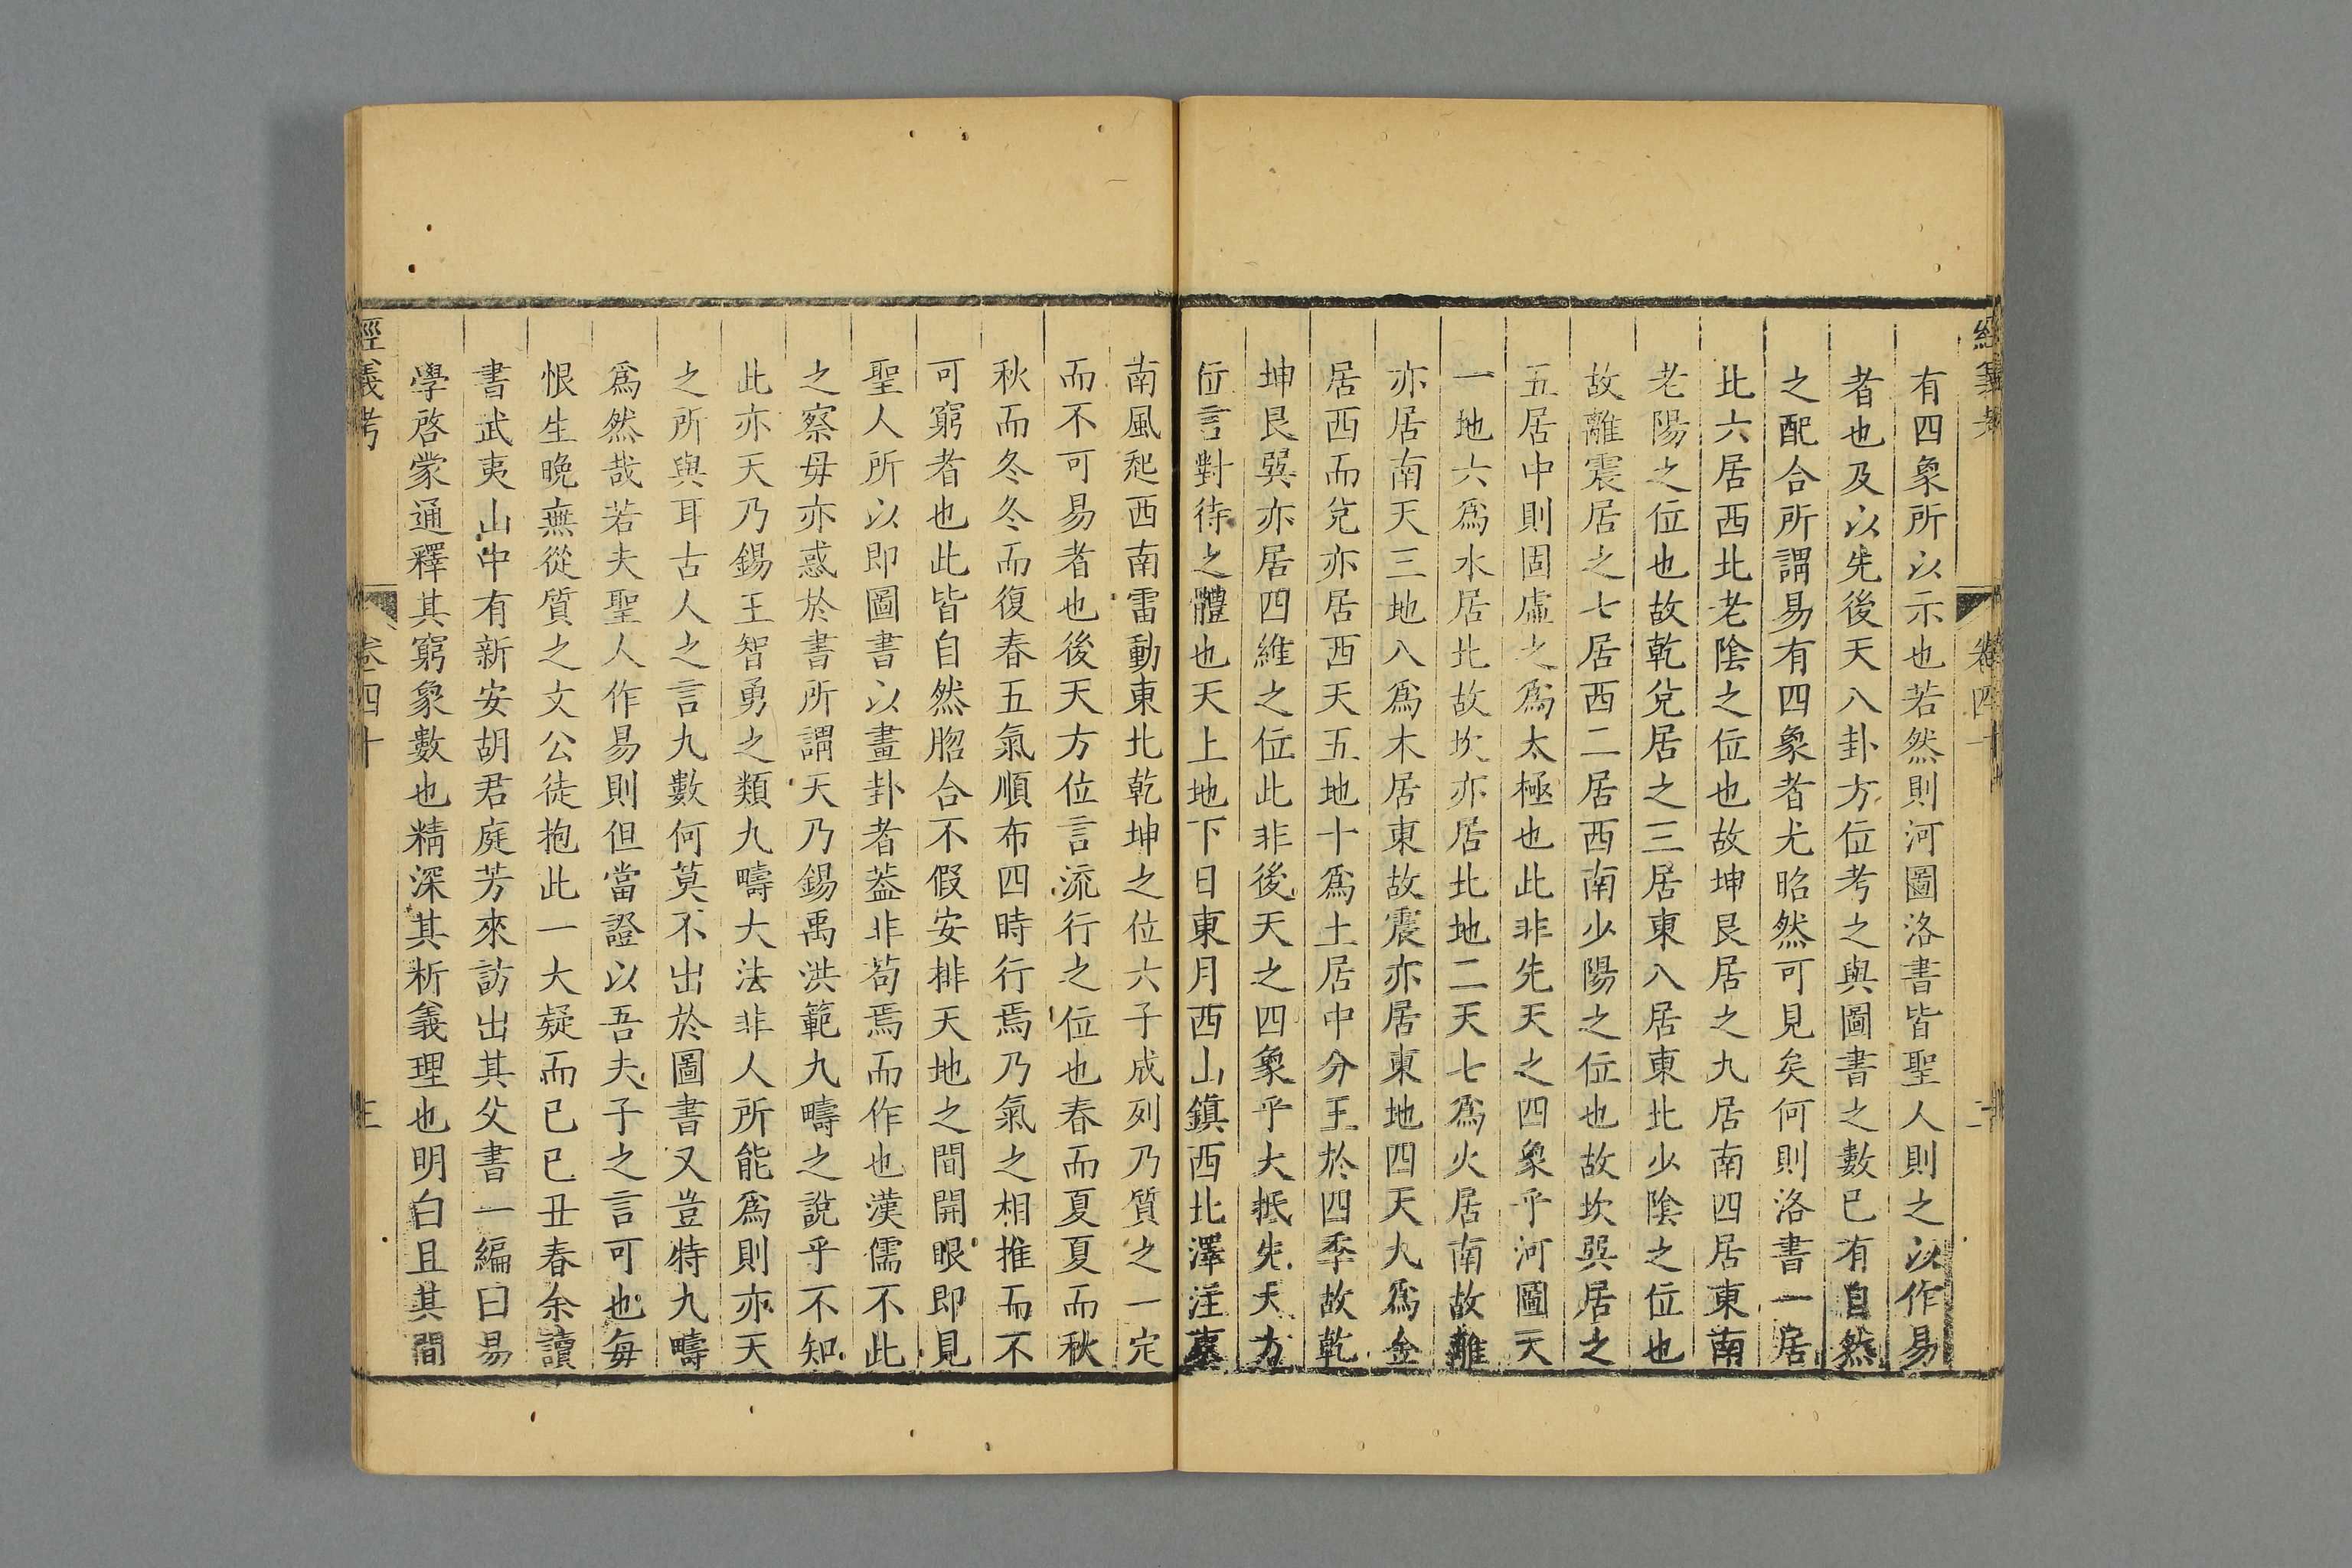 經義考 卷四十 二
有四象所以示也若然則河圖洛書皆聖人則之以作易
者也及以先後天八卦方位考之與圖書之數已有自然
之配合所謂易有四象者尤昭然可見矣何則洛書一居
北六居西北老陰之位也故坤艮居之九居南四居東南
老陽之位也故乾兌居之三居東八居東北少陰之位也
故離震居之七居西二居西南少陽之位也故坎巽居之
五居中則固虛之爲太極也此非先天之四象乎河圖天
一地六爲水居北故坎亦居北地二天七爲火居南故離
亦居南天三地八爲木居東故震亦居東地四天九爲金
居西而兌亦居西天五地十爲土居中分王於四季故乾
坤艮巽亦居四維之位此非後天之四象乎大抵先天方
位言對待之體也天上地下日東月西山鎮西北澤注東
南風起西南雷動東北乾坤之位六子成列乃質之一定
而不可易者也後天方位言流行之位也春而夏夏而秋
秋而冬冬而復春五氣順布四時行焉乃氣之相推而不
可窮者也此皆自然脗合不假安排天地之間開眼即見
聖人所以即圖書以畫卦者葢非苟焉而作也漢儒不此
之察毋亦惑於書所謂天乃錫禹洪範九疇之說乎不知
此亦天乃錫王智勇之類九疇大法非人所能爲則亦天
之所與耳古人之言九數何莫不出於圖書又豈特九疇
爲然哉若夫聖人作易則但當證以吾夫子之言可也每
恨生晚無從質之文公徒抱此一大疑而已已丑春余讀
書武夷山中有新安胡君庭芳來訪出其父書一編曰易
學啓蒙通釋其窮象數也精深其析義理也明白且其間
經義考 卷四十